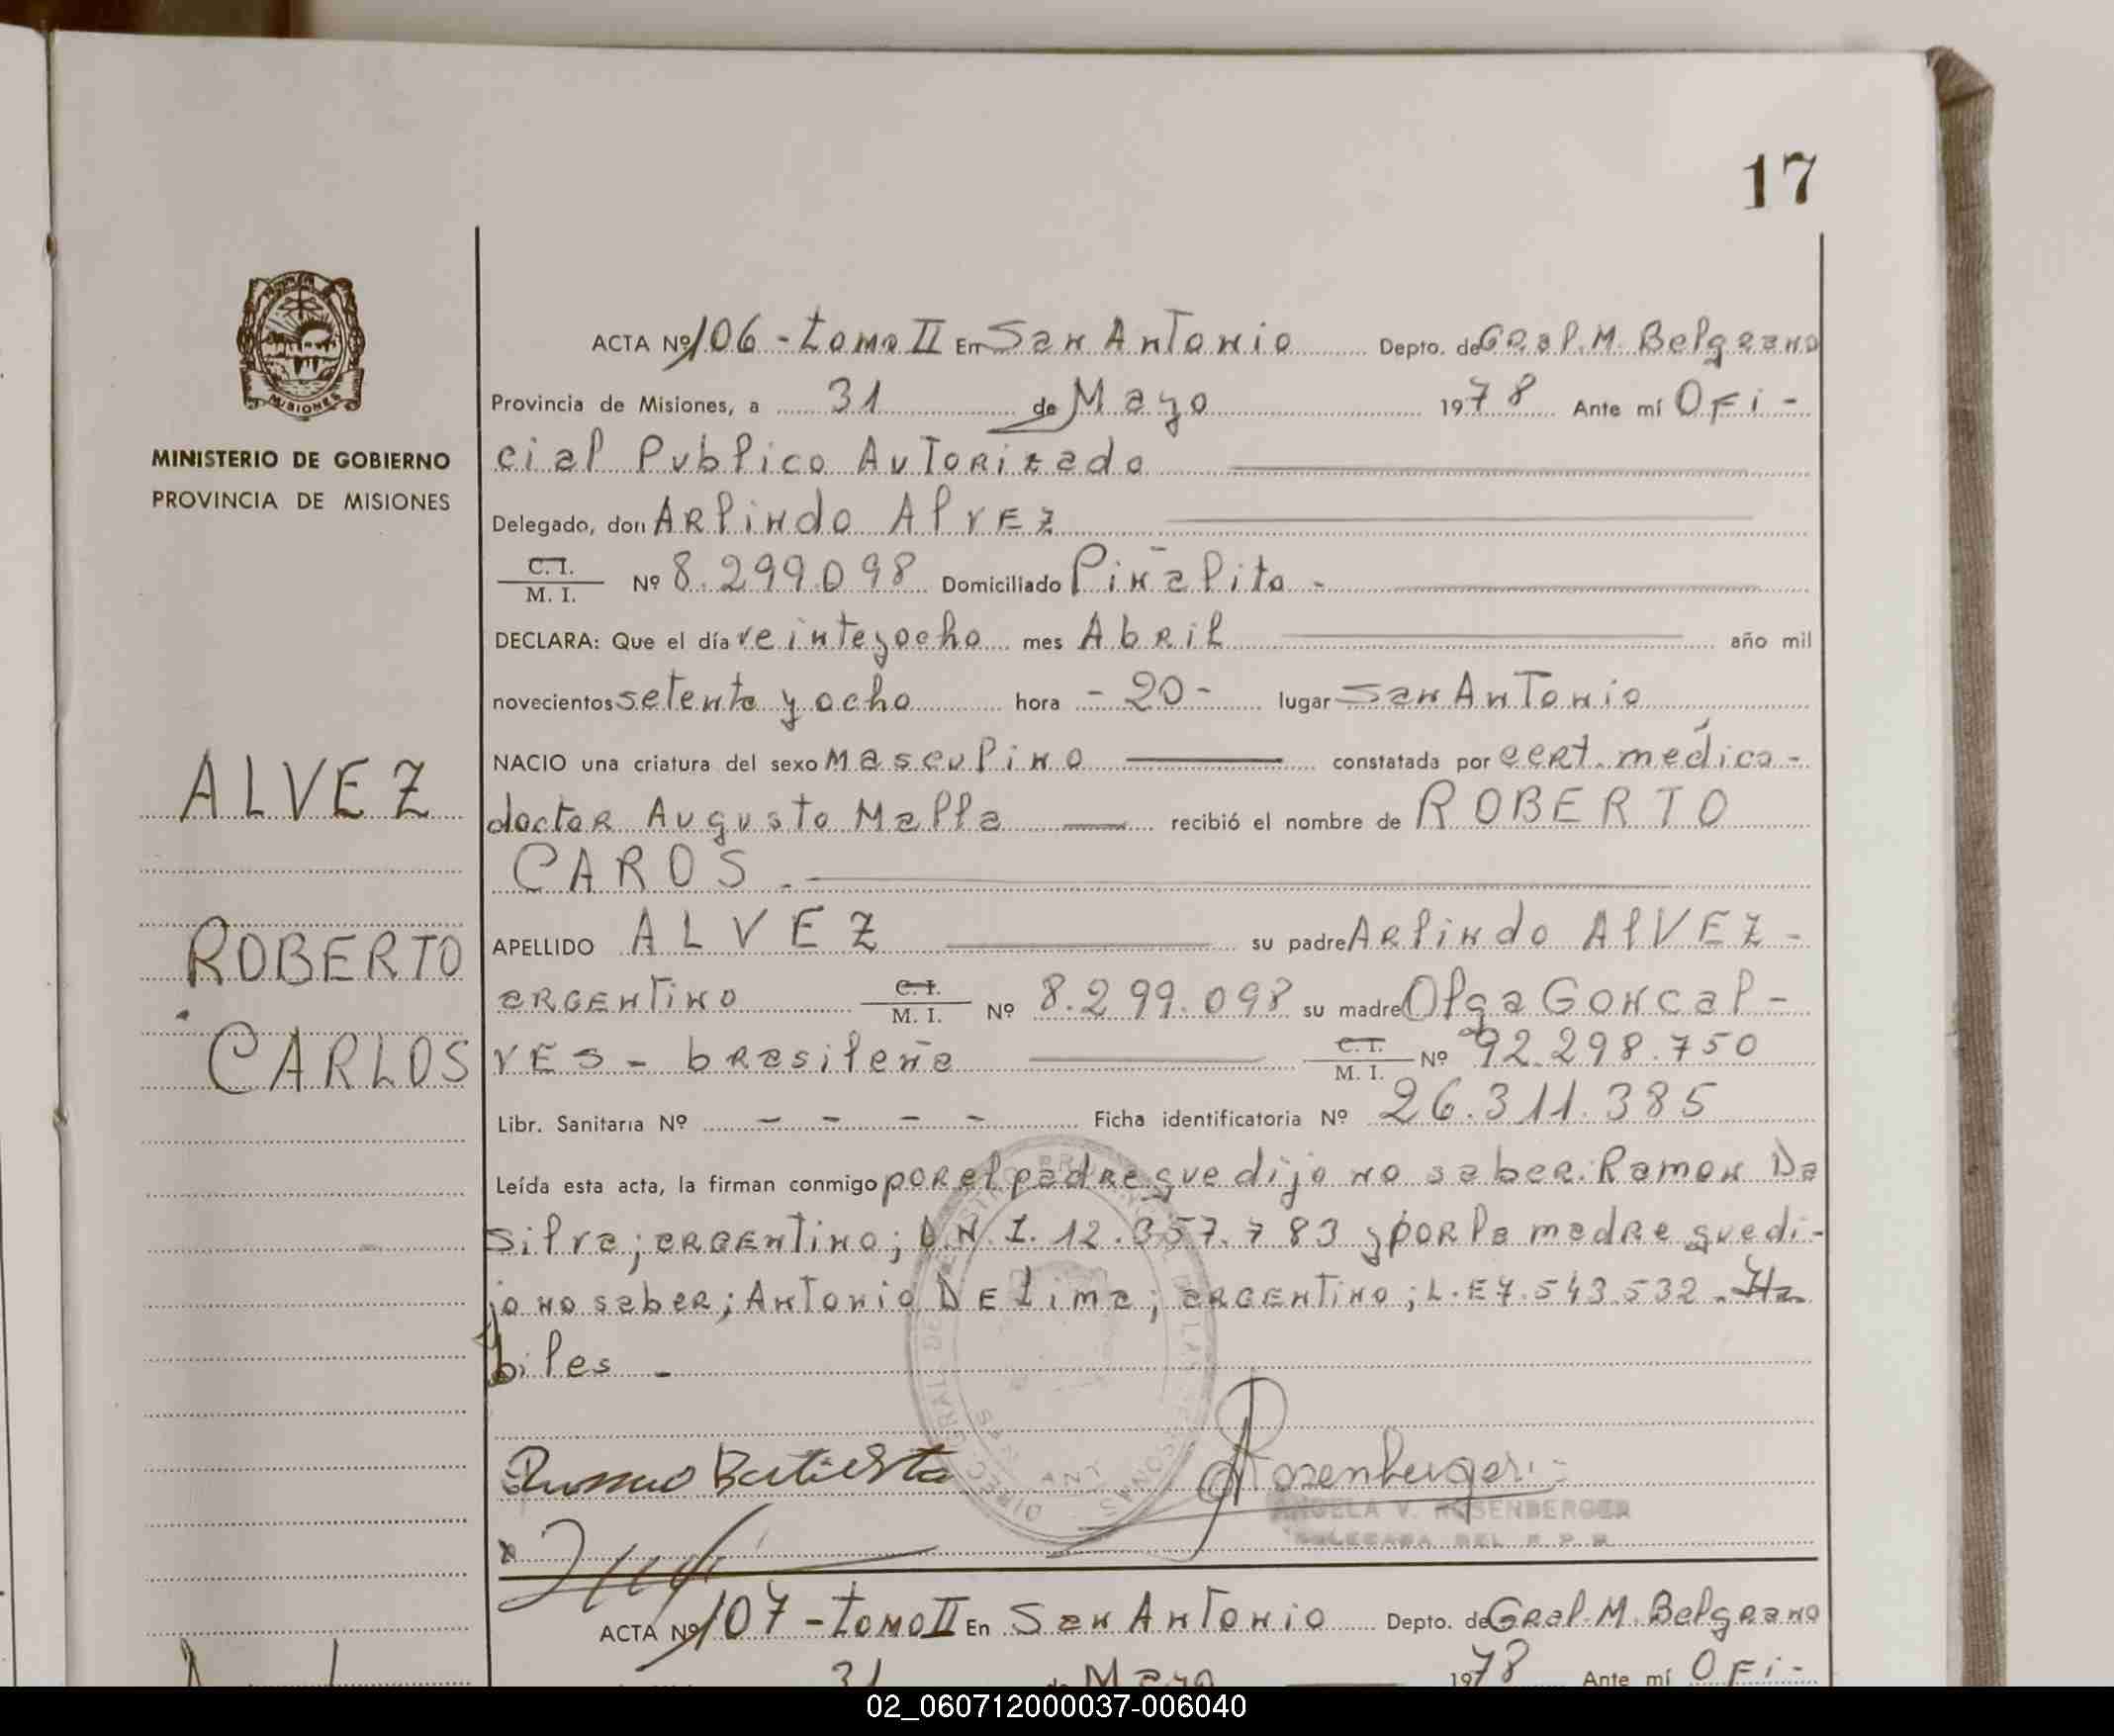 17
ACTA Nº 106 - tomo II En San Antonio Depto. de Gral. M. Belgrano
Provincia de Misiones, a 31 de Mayo 1978 Ante mí Ofi-
MINISTERIO DE GOBIERNO
PROVINCIA DE MISIONES
MISIONES
cial Publico Autorizado
Delegado, don Arlindo Alvez
C.I. M. I. Nº 8.299.098 Domiciliado Piñalito -
DECLARA: Que el día veinteyocho mes Abril año mil
novecientos setenta y ocho hora - 20 - lugar San Antonio
NACIO una criatura del sexo masculino constatada por cert. médico -
doctor Augusto Malla recibió el nombre de ROBERTO
CAROS.
ALVEZ
ROBERTO
CARLOS
APELLIDO ALVEZ su padre Arlindo AlVEZ -
argentino C.I. M. I. Nº 8.299.098 su madre Olga Goncal-
ves - brasileña C.I. M. I. Nº 92.298.750
Libr. Sanitaria Nº - - - - Ficha identificatoria Nº 26.311.385
Leída esta acta, la firman conmigo por el padre que dijo no saber: Ramon Da
Silva; argentino; D.N.I. 12.357.783 y por la madre que di-
jo no saber; Antonio De Lima; argentino; L.E 7.543.532 - Ha
biles -
Rosenberger
ANGELA V. ROSENBERGER
ACTA Nº 107 - tomo II En San Antonio Depto. de Gral. M. Belgrano
31 de Mayo 1978 Ante mí Ofi-
02_060712000037-006040